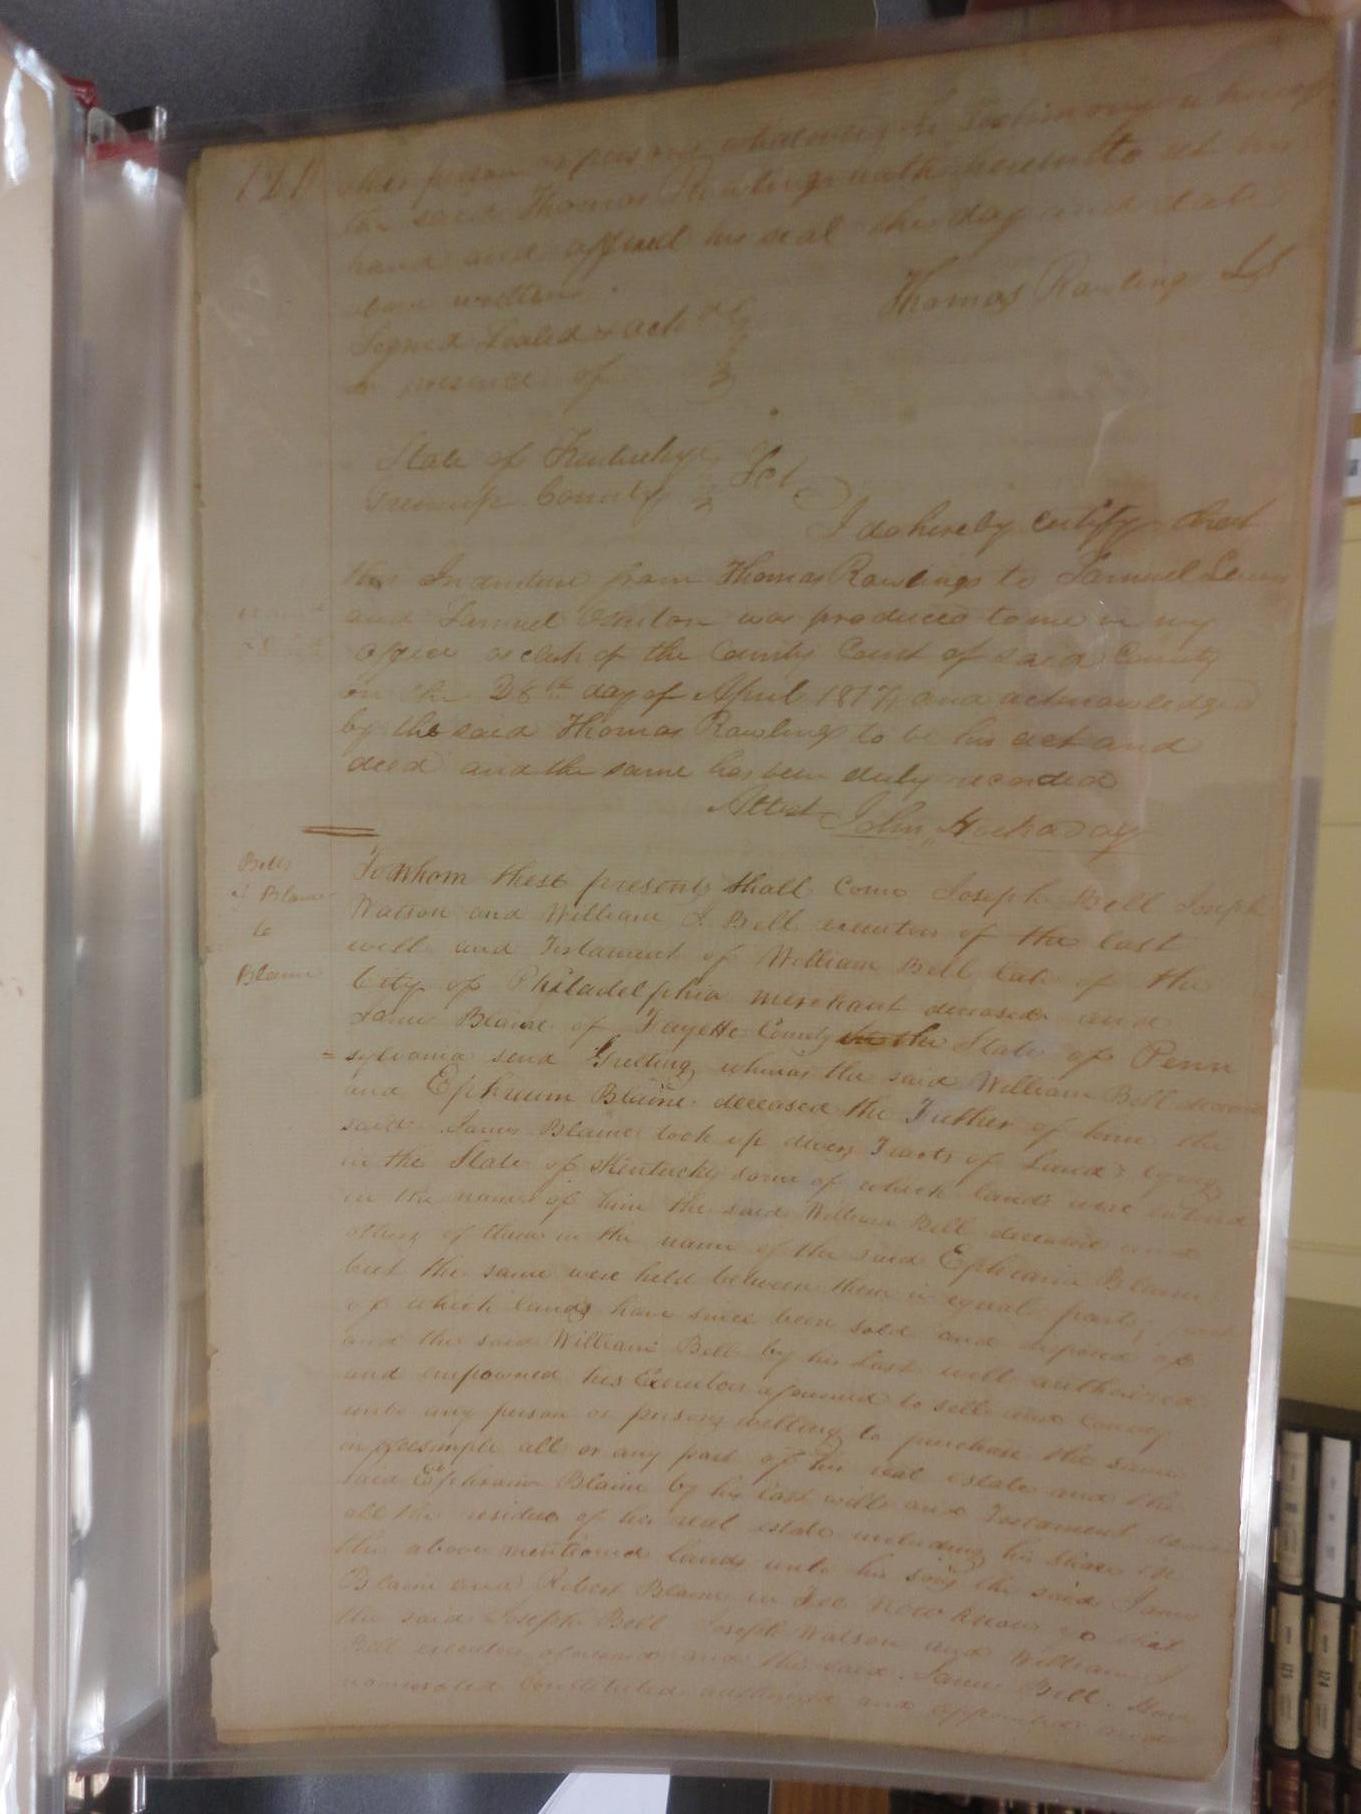 other person or persons whatsoever In Testimony whereof
the said Thomas Rawlings hath hereunto set his
hand and affixed his seal the day and date
above written
Thomas Rawlings LS
Signed Sealed & ack
in presence of
State of Kentucky
Greenup County Sct
I do hereby certify that
this Indenture from Thomas Rawlings to Samuel
and Samuel was produced to me in my
office as clerk of the County Court of said County
on the 28th day of April 1817, and acknowledged
by the said Thomas Rawlings to be his act and
deed and the same has been duly recorded
Attest John Hockaday
Bells
& Blaine
to
Blaine
To Whom these presents shall Come Joseph Bell Joseph
Watson and William J. Bell executors of the last
will and Testament of William Bell late of the
City of Philadelphia merchant deceased and
James Blaine of Fayette County the State of Penn
=sylvania send Greeting whereas the said William Bell deceased
and Ephraim Blaine deceased the Father of him the
said James Blaine took up divers Tracts of Lands lying
in the State of Kentucky some of which lands were entered
in the name of him the said William Bell deceased and
others of them in the name of the said Ephraim Blaine
but the same were held between them in equal parts, part
of which lands have since been sold and disposed of
and the said William Bell by his Last will authorized
and empowered his Executors aforesaid to sell and Convey
unto any person or persons willing to purchase the same
in feesimple all or any part of his real estate and the
said Ephraim Blaine by his last will and Testament
all the residue of his real estate including his share in
the above mentioned lands unto his sons the said James
Blaine and Robert Blaine in Fee Now know ye that
the said Joseph Bell Joseph Watson and William J
Bell executors aforesaid and the said James Bell. Have
nominated Constituted authorized and appointed and